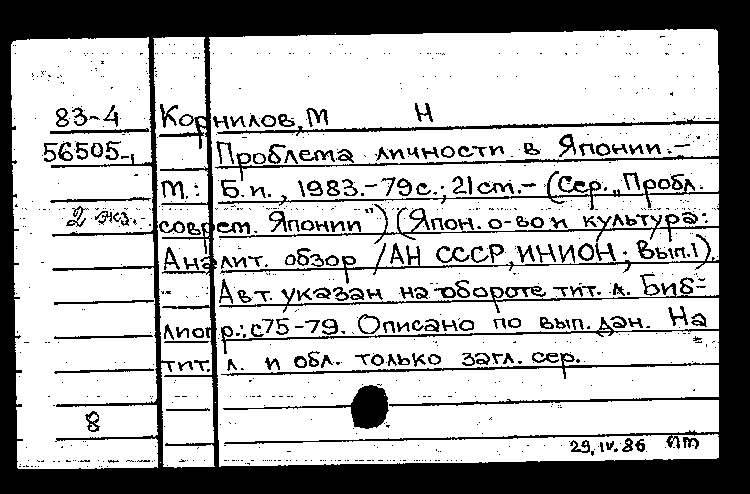 83-4 Корнилов, М Н
56505-, Проблема личности в Японии.-
М.: Б.и., 1983.-79с.; 21см.- (Сер. „Пробл.
2 экз. соврем. Японии") (Япон. о-во и культура:
Аналит. обзор / АН СССР, ИНИОН; Вып.1).
Авт. указан на обороте тит. л. Биб-
лиогр.: с75-79. Описано по вып. дан. На
тит. л. и обл. только загл. сер.
8
29.IV.86 ПТ